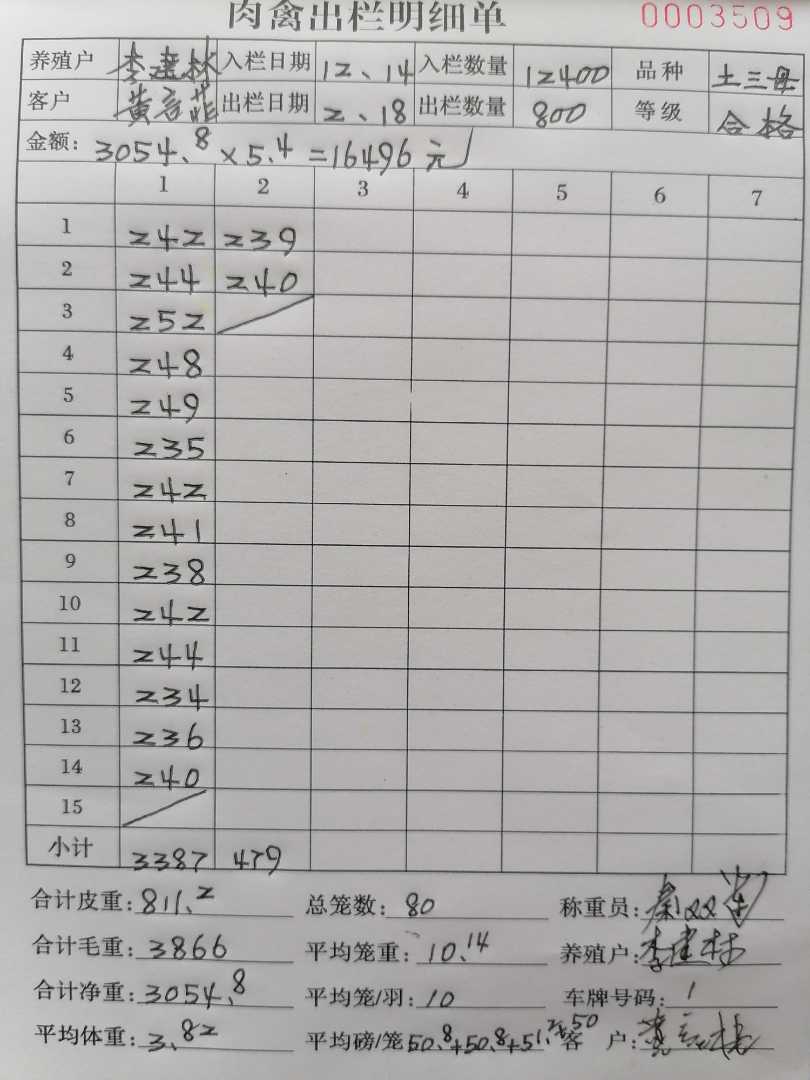 肉禽出栏明细单 0003509
养殖户 李建林 入栏日期 12、14 入栏数量 12400 品种 土三母
客户 黄 出栏日期 2、18 出栏数量 800 等级 合格
金额: 3054.8 × 5.4 =16496 元
1 2 3 4 5 6 7
1 242 239
2 244 240
3 252
4 248
5 249
6 235
7 242
8 241
9 238
10 242
11 244
12 234
13 236
14 240
15
小计 3387 479
合计皮重: 811.2 总笼数: 80 称重员: 双
合计毛重: 3866 平均笼重: 10.14 养殖户: 李建林
合计净重: 3054.8 平均笼/羽: 10 车牌号码: 1
平均体重: 3.82 平均磅/笼 50.8+50.8+51. 客 户: